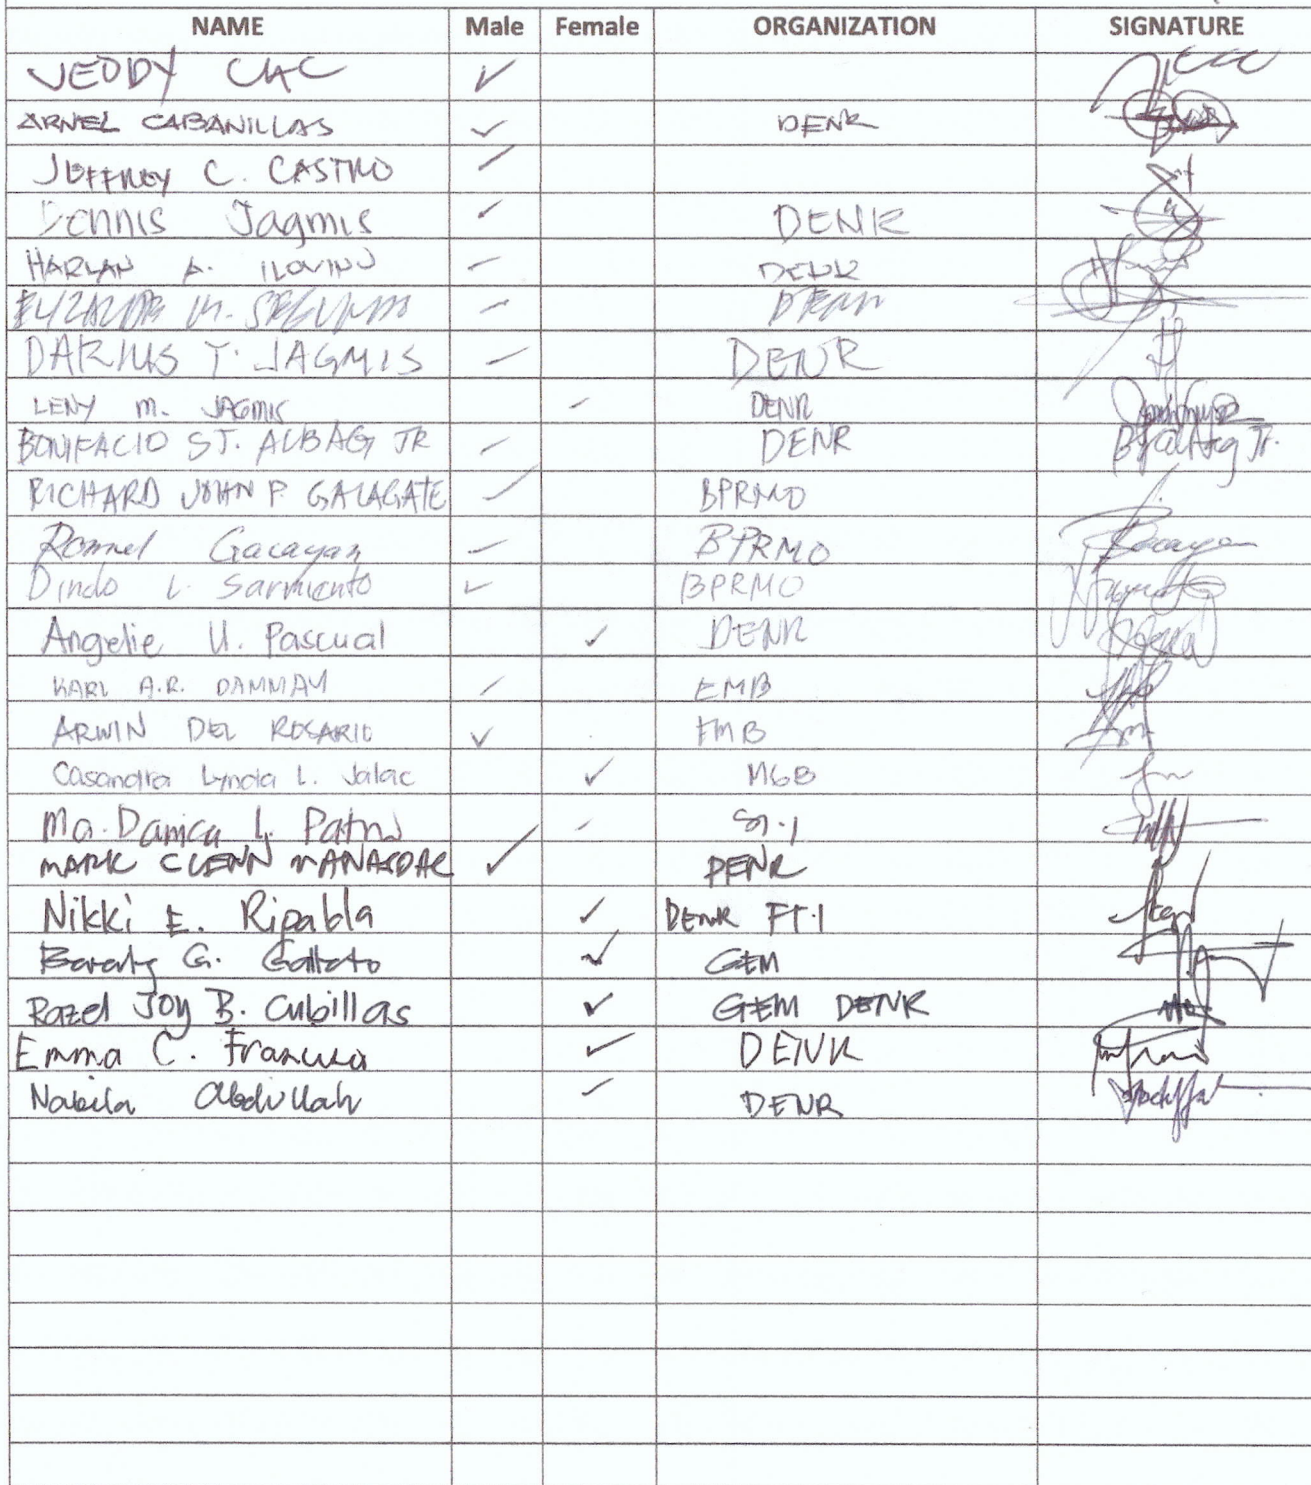 NAME Male Female ORGANIZATION SIGNATURE
JEDDY CAC ✓
ARNEL CABANILLAS ✓ DENR
JEFFREY C. CASTRO ✓
Dennis Jagmis ✓ DENR
HARLAN A. ILOVINO ✓ DENR
M. ✓
DARIUS T. JAGMIS ✓ DENR
LENY M. JAGMIS ✓ DENR
BONIFACIO ST. ALBAG JR ✓ DENR
RICHARD JOHN P. GALAGATE ✓ BPRMO
Rommel Gacayan ✓ BPRMO
Dindo L. Sarmiento ✓ BPRMO
Angelie U. Pascual ✓ DENR
KARL A.R. DAMMAY ✓ EMB
ARWIN DEL ROSARIO ✓ EMB
Casandra Lynda L. Jalac ✓ MGB
Ma. Danica L. ✓
MARK GLENN ✓ DENR
Nikki E. Ripabla ✓ DENR FT.1
G. ✓ GEM
Razel Joy B. Cubillas ✓ GEM DENR
Emma C. ✓ DENR
Nabila Abdullah ✓ DENR